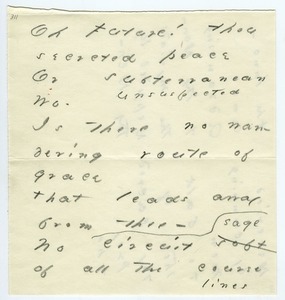 Oh Future! thou
secreted peace
Or subterranean
wo -
unsuspected
Is there no wan-
dering route of
grace
that leads away
from thee -
No circuit sage
soft
of all the course
lines